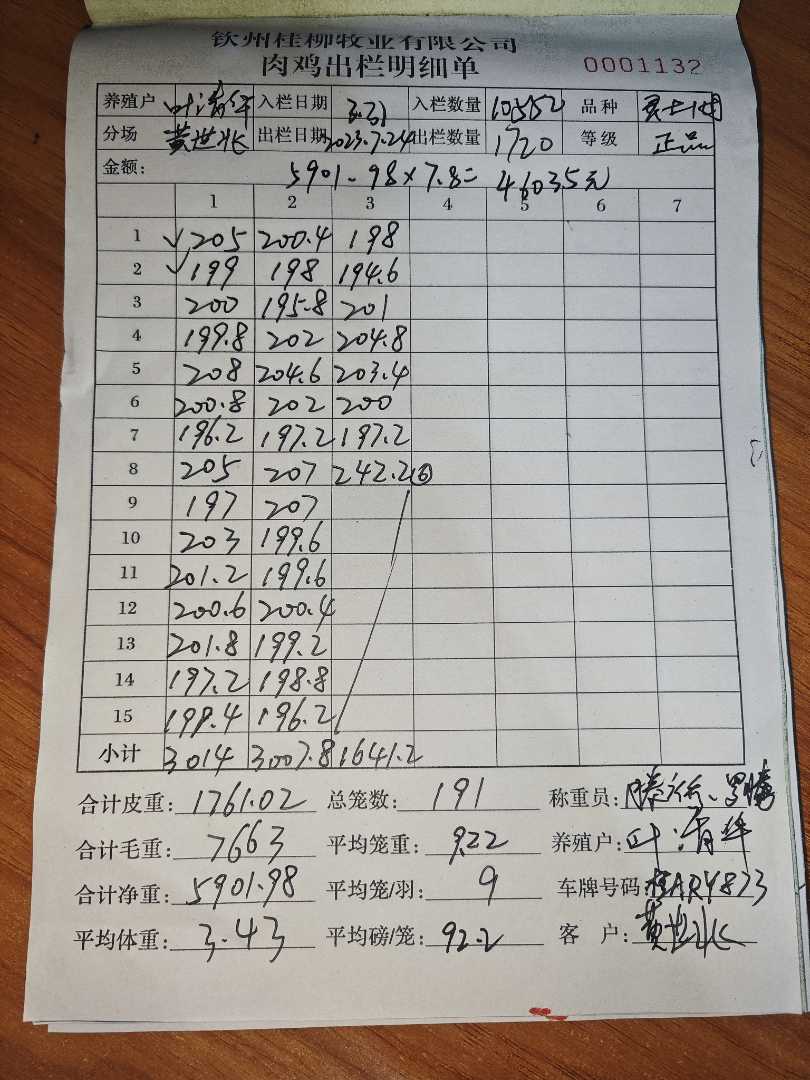 钦州桂柳牧业有限公司
肉鸡出栏明细单 0001132
养殖户 叶清华 入栏日期 3.31 入栏数量 10552 品种
分场 黄世兆 出栏日期 2023.7.24 出栏数量 1720 等级 正品
金额: 5901.98×7.8=46035元
1 2 3 4 5 6 7
1 ✓205 200.4 198
2 ✓199 198 194.6
3 200 195.8 201
4 199.8 202 204.8
5 208 204.6 203.4
6 200.8 202 200
7 196.2 197.2 197.2
8 205 207 242.2 ⑥
9 197 207
10 203 199.6
11 201.2 199.6
12 200.6 200.4
13 201.8 199.2
14 197.2 198.8
15 199.4 196.2
小计 3014 3007.8 1641.2
合计皮重: 1761.02 总笼数: 191 称重员:
合计毛重: 7663 平均笼重: 9.22 养殖户: 叶清华
合计净重: 5901.98 平均笼/羽: 9 车牌号码: 桂AR4873
平均体重: 3.43 平均磅/笼: 92.2 客户: 黄世兆